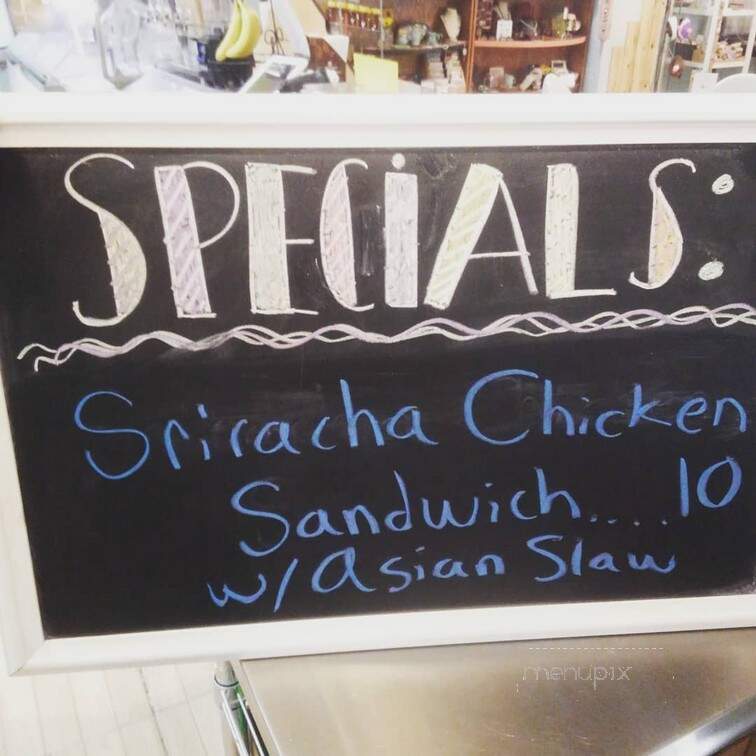 SPECiALS:
Sriracha Chicken
Sandwich.....10
w/Asian Slaw
menupix